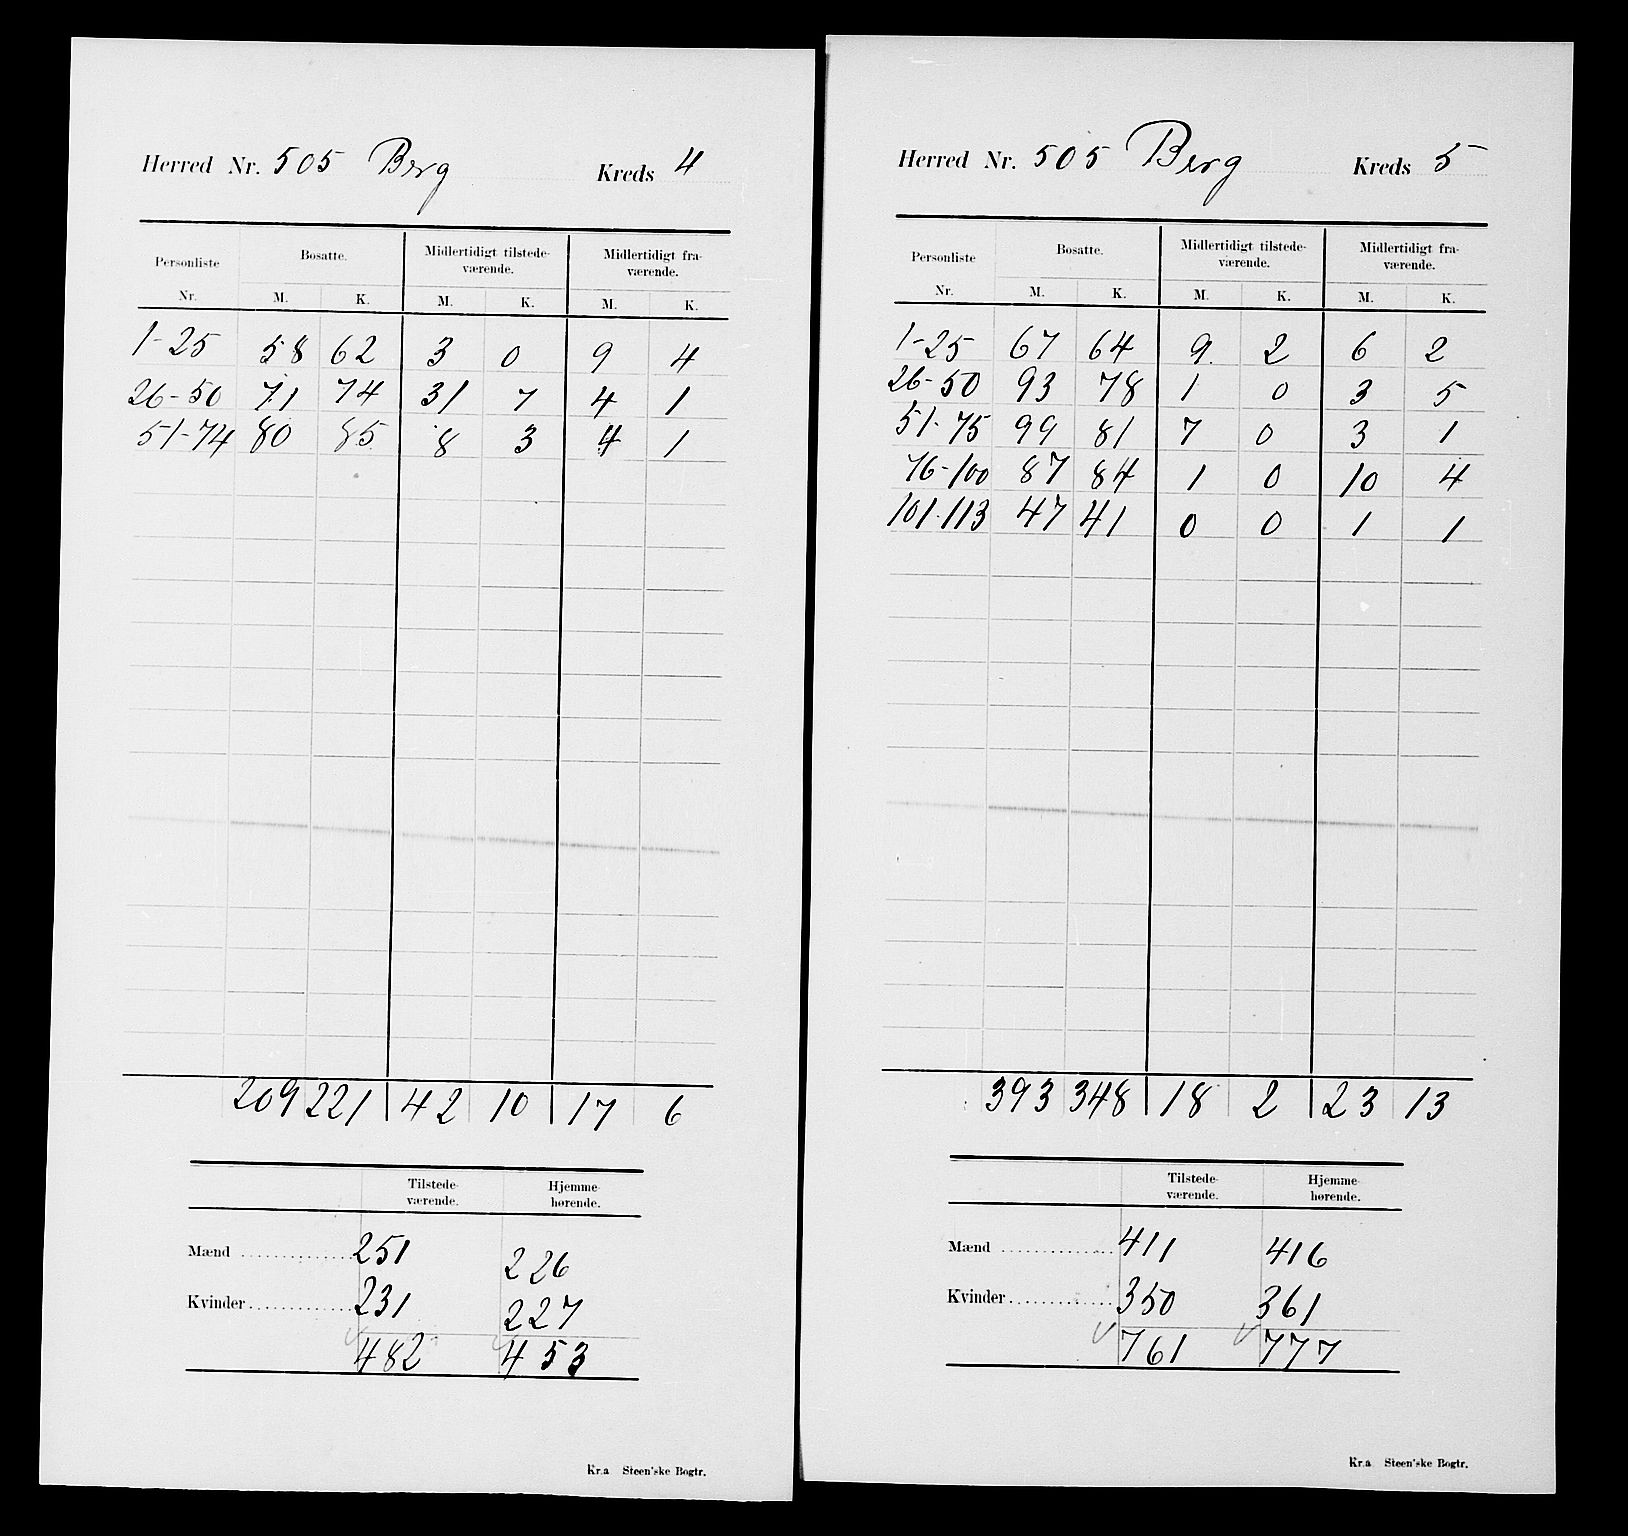 Herred Nr. 505 Berg Kreds 4
Personliste Bosatte. Midlertidigt tilstede- Midlertidigt fra-
værende. værende.
Nr. M. K. M. K. M. K.
1-25 58 62 3 0 9 4
26-50 71 74 31 7 4 1
51-74 80 85 8 3 4 1
209 221 42 10 17 6
Tilstede- Hjemme-
værende. hørende.
Mænd 251 226
Kvinder 231 227
482 453
Kr.a Steen'ske Bogtr.
Herred Nr. 505 Berg Kreds 5
Personliste Bosatte. Midlertidigt tilstede- Midlertidigt fra-
værende. værende.
Nr. M. K. M. K. M. K.
1-25 67 64 9 2 6 2
26-50 93 78 1 0 3 5
51-75 99 81 7 0 3 1
76-100 87 84 1 0 10 4
101-113 47 41 0 0 1 1
393 348 18 2 23 13
Tilstede- Hjemme-
værende. hørende.
Mænd 411 416
Kvinder 350 361
761 777
Kr.a Steen'ske Bogtr.